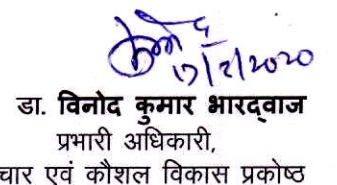 १७/२/२०२०
डा. विनोद कुमार भारद्वाज
प्रभारी अधिकारी,
चार एवं कौशल विकास प्रकोष्ठ